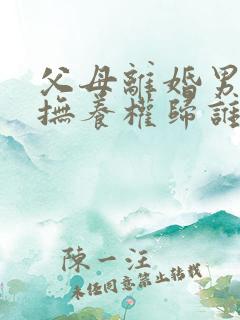 父母離婚男
撫養權歸誰
陳一汪
未經同意禁止轉載